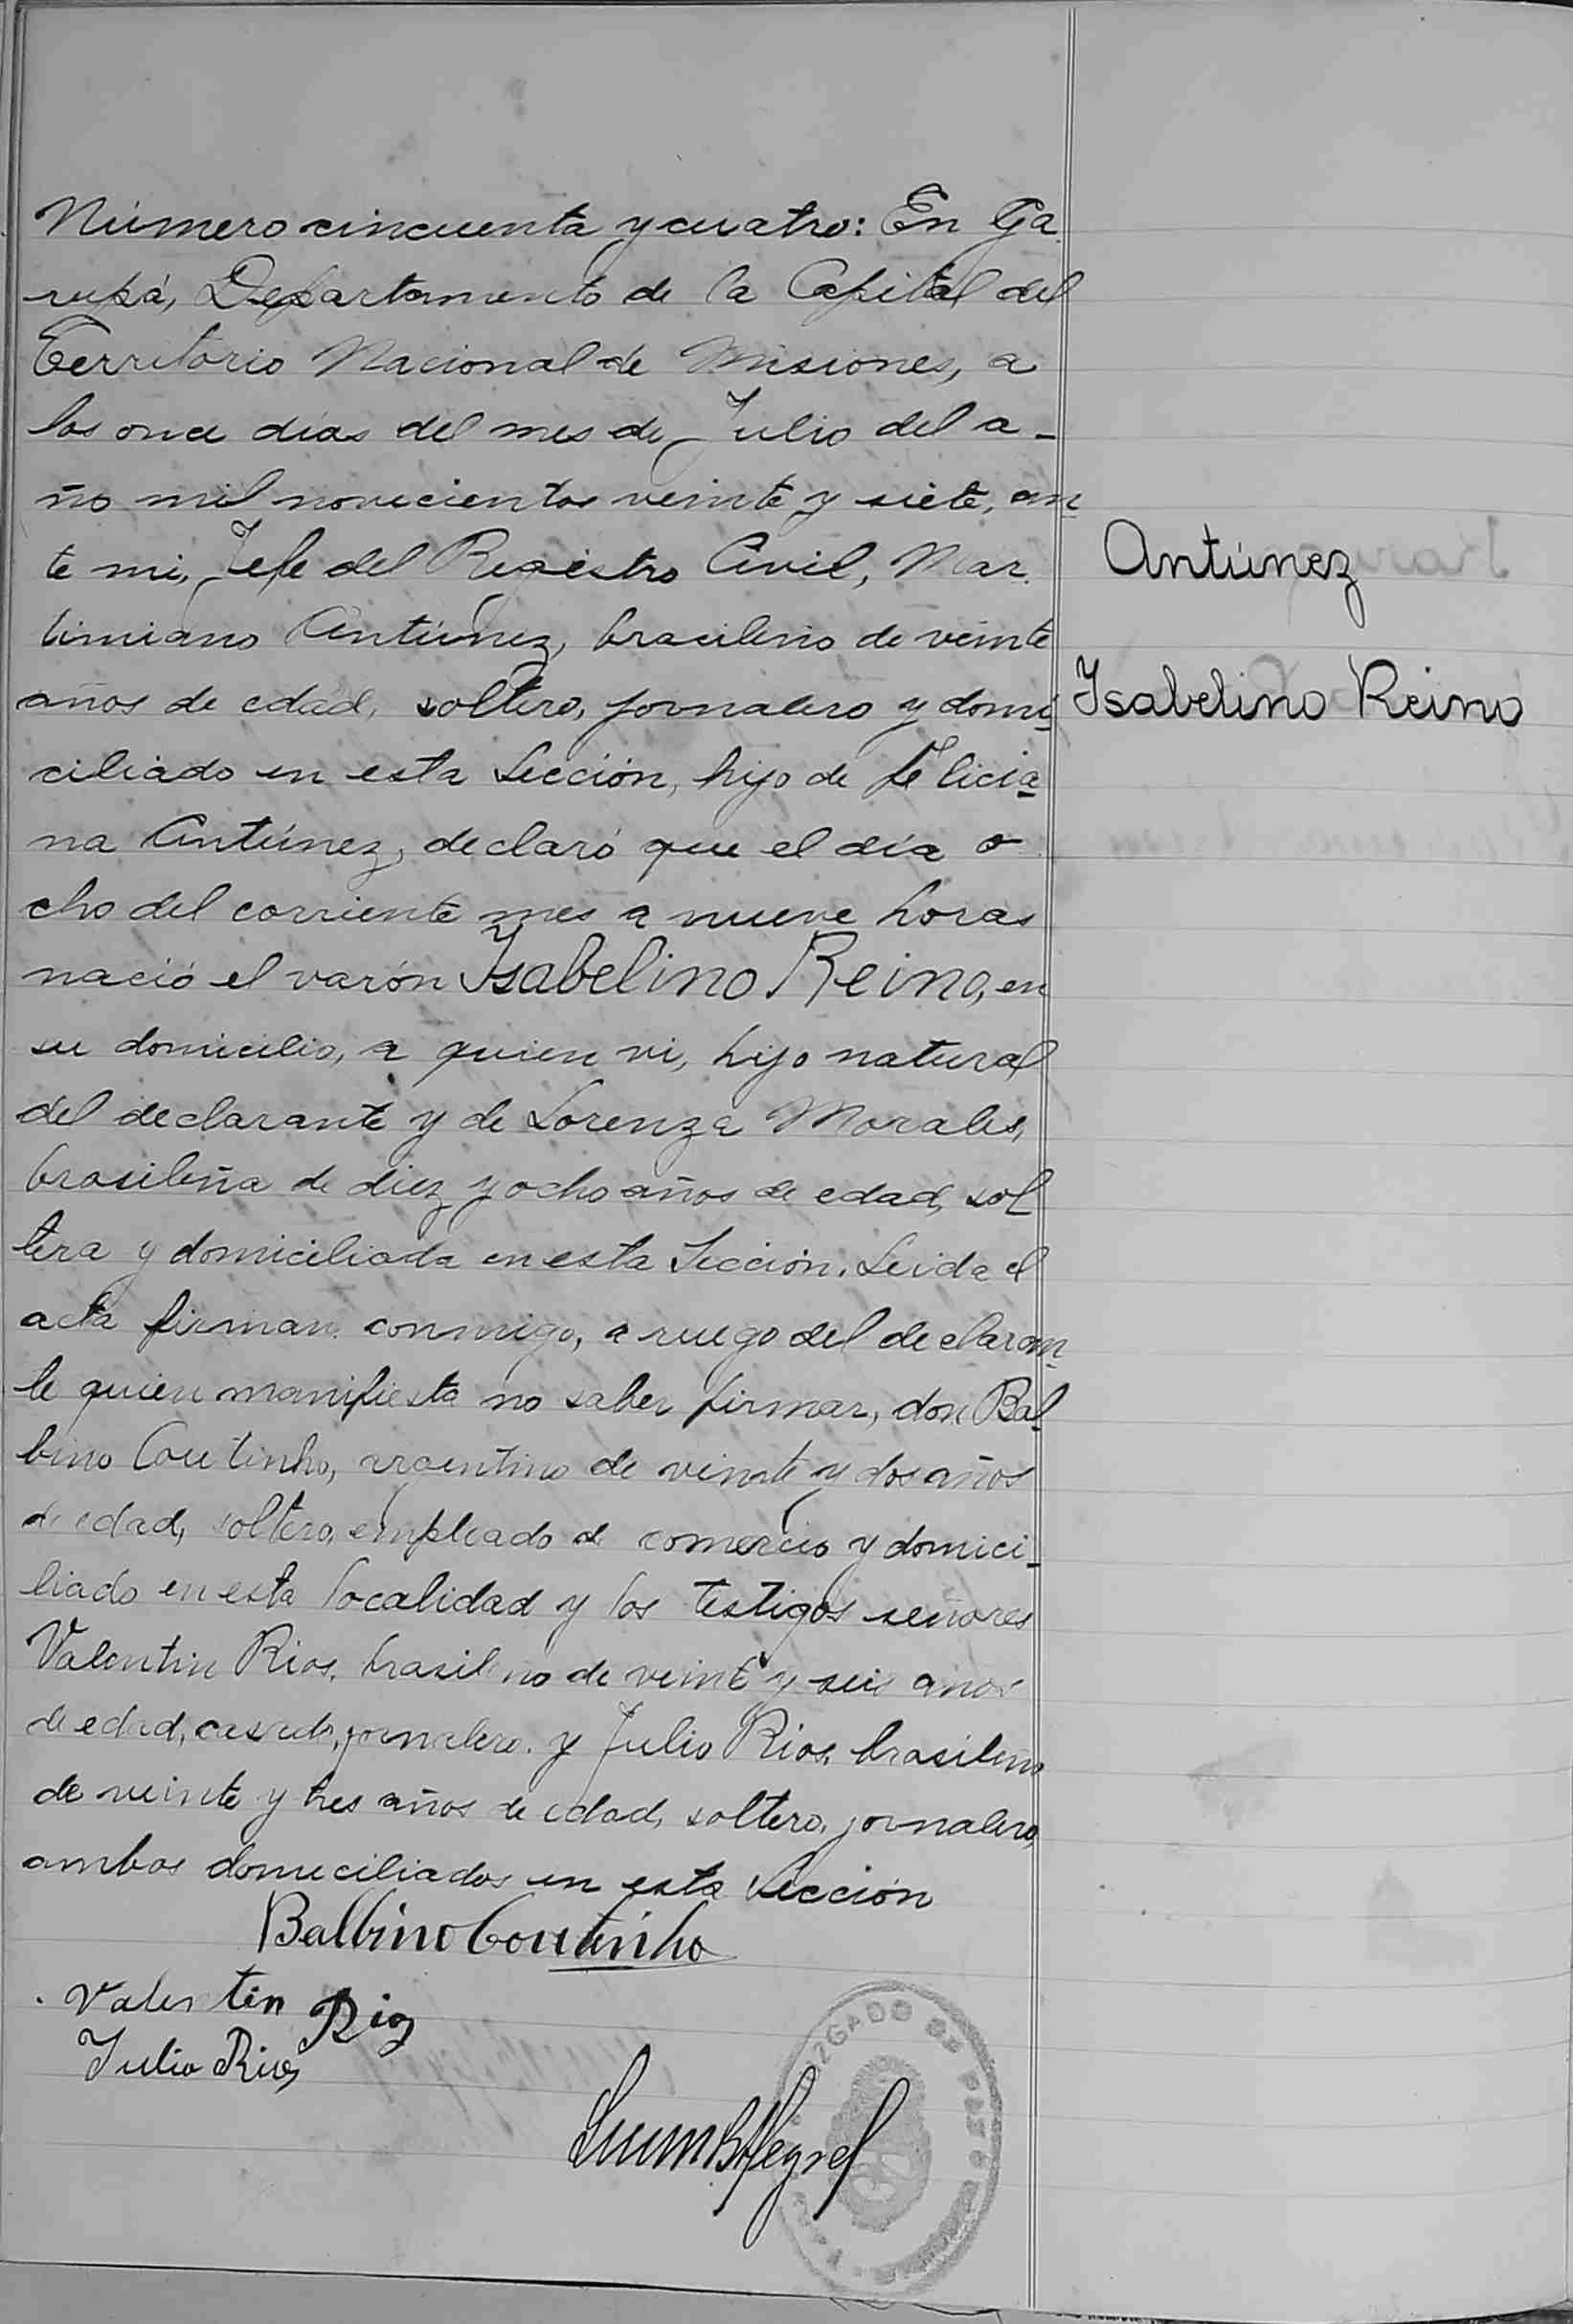 Número cincuenta y cuatro: En Ga
rupá, Departamento de la Capital del
Territorio Nacional de Misiones, a
los once días del mes de Julio del a-
ño mil novecientos veinte y siete, an
te mi, Jefe del Registro Civil, Mar
timiano Antúnez, brasileno de veinte
años de edad, soltero, jornalero y domi
ciliado en esta Sección, hijo de Felicia
na Antúnez, declaró que el día o
cho del corriente mes a nueve horas
nació el varón Isabelino Reino, en
su domicilio, a quien vi, hijo natural
del declarante y de Lorenza Morales,
brasileña de diez y ocho años de edad, sol
tera y domiciliada en esta Sección. Leida el
acta firman conmigo, a ruego del declaran
te quien manifiesta no saber firmar, don Bal
bino Coutinho, argentino de veinte y dos años
de edad, soltero, empleado de comercio y domici-
liado en esta localidad y los testigos señores
Valentin Rios, brasileno de veinte y seis anos
de edad, casado, jornalero. y Julio Rios, brasileno
de veinte y tres años de edad, soltero, jornalero,
ambos domiciliados en esta Sección
Balbino Coutinho
Valentin Rios
Julio Rios
JUZGADO DE PAZ
Antúnez
Isabelino Reino